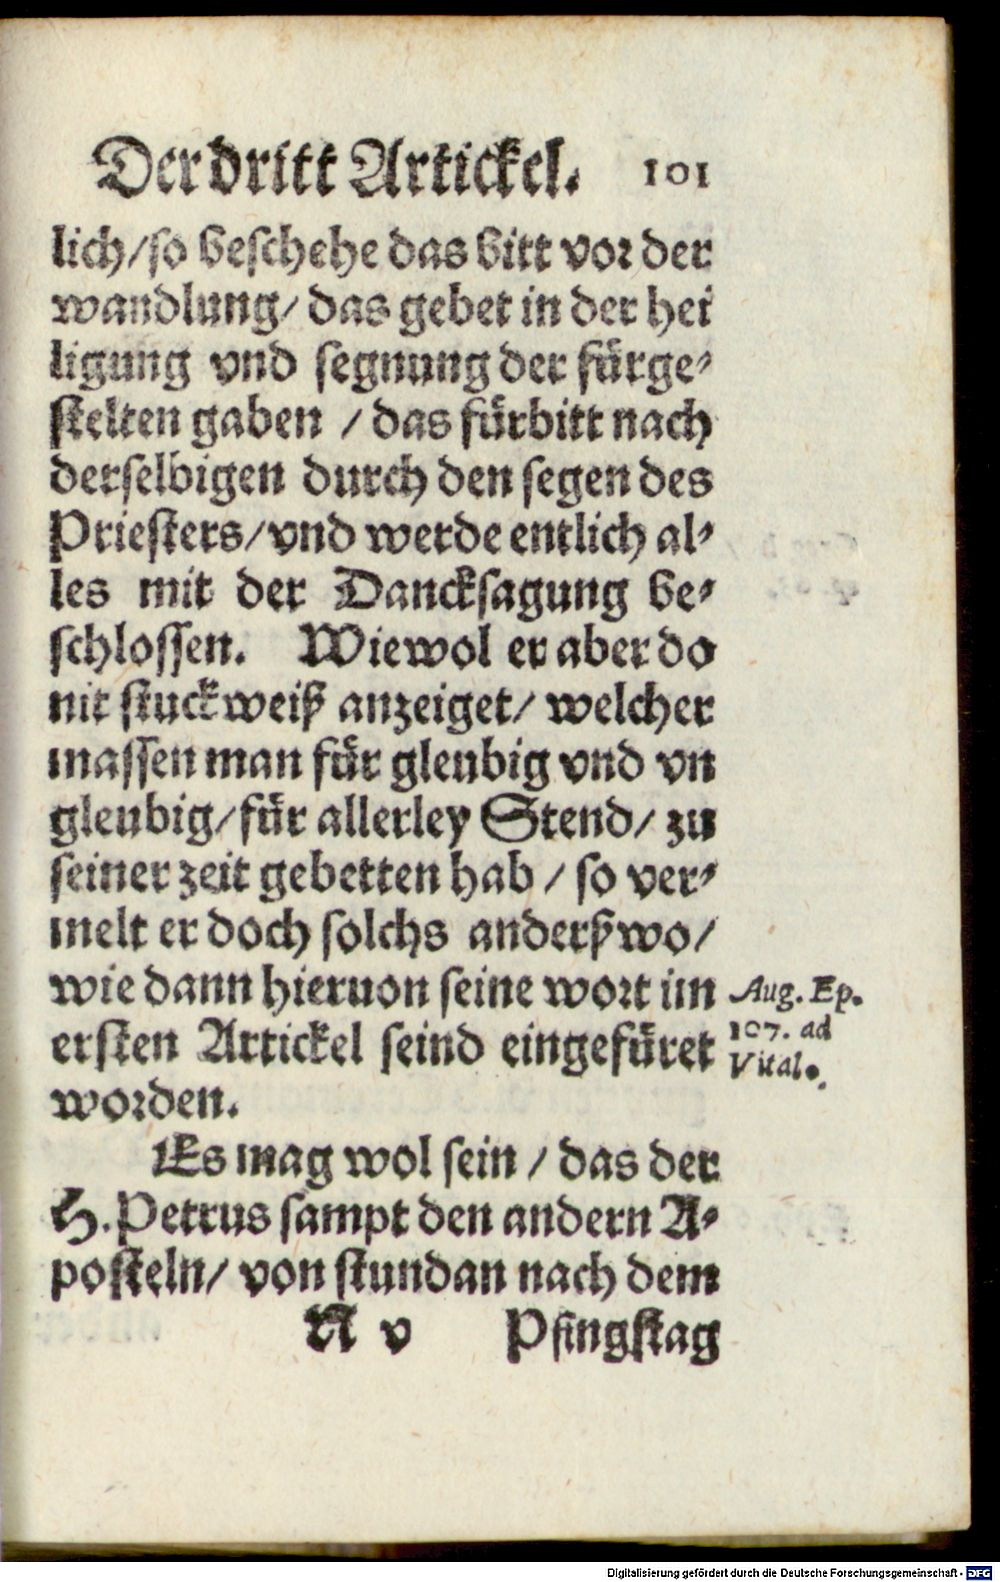 Der dritt Artickel. 101
lich/so beschehe das bitt vor der
wandlung/ das gebet in der hei
ligung vnd segnung der fürge-
stelten gaben / das fürbitt nach
derselbigen durch den segen des
Priesters/vnd werde entlich al-
les mit der Dancksagung be-
schlossen. Wiewol er aber do
nit stuckweiß anzeiget/ welcher
massen man für gleubig vnd vn
gleubig/für allerley Stend/ zu
seiner zeit gebetten hab / so ver-
melt er doch solchs anderßwo/
wie dann hieruon seine wort im
ersten Artickel seind eingefüret
worden.
Aug. Ep.
107. ad
Vital.
Es mag wol sein / das der
H. Petrus sampt den andern A-
posteln/ von stundan nach dem
N v Pfingstag
Digitalisierung gefördert durch die Deutsche Forschungsgemeinschaft - DFG